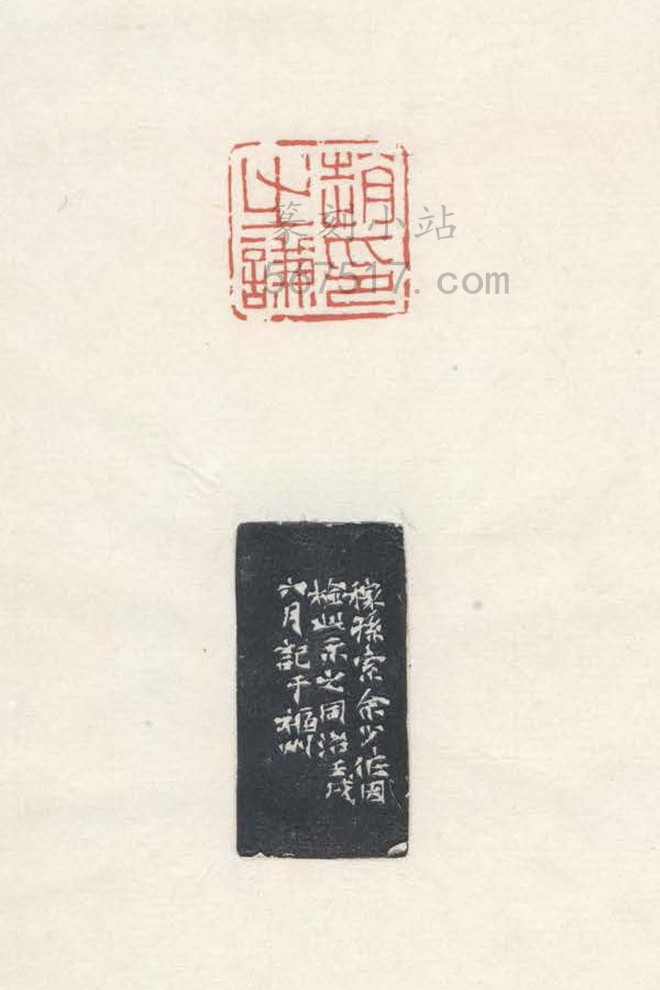 趙印
之謙
篆刻小站
567517.com
稼孫索余少作因
檢此示之同治壬戌
六月記于福州